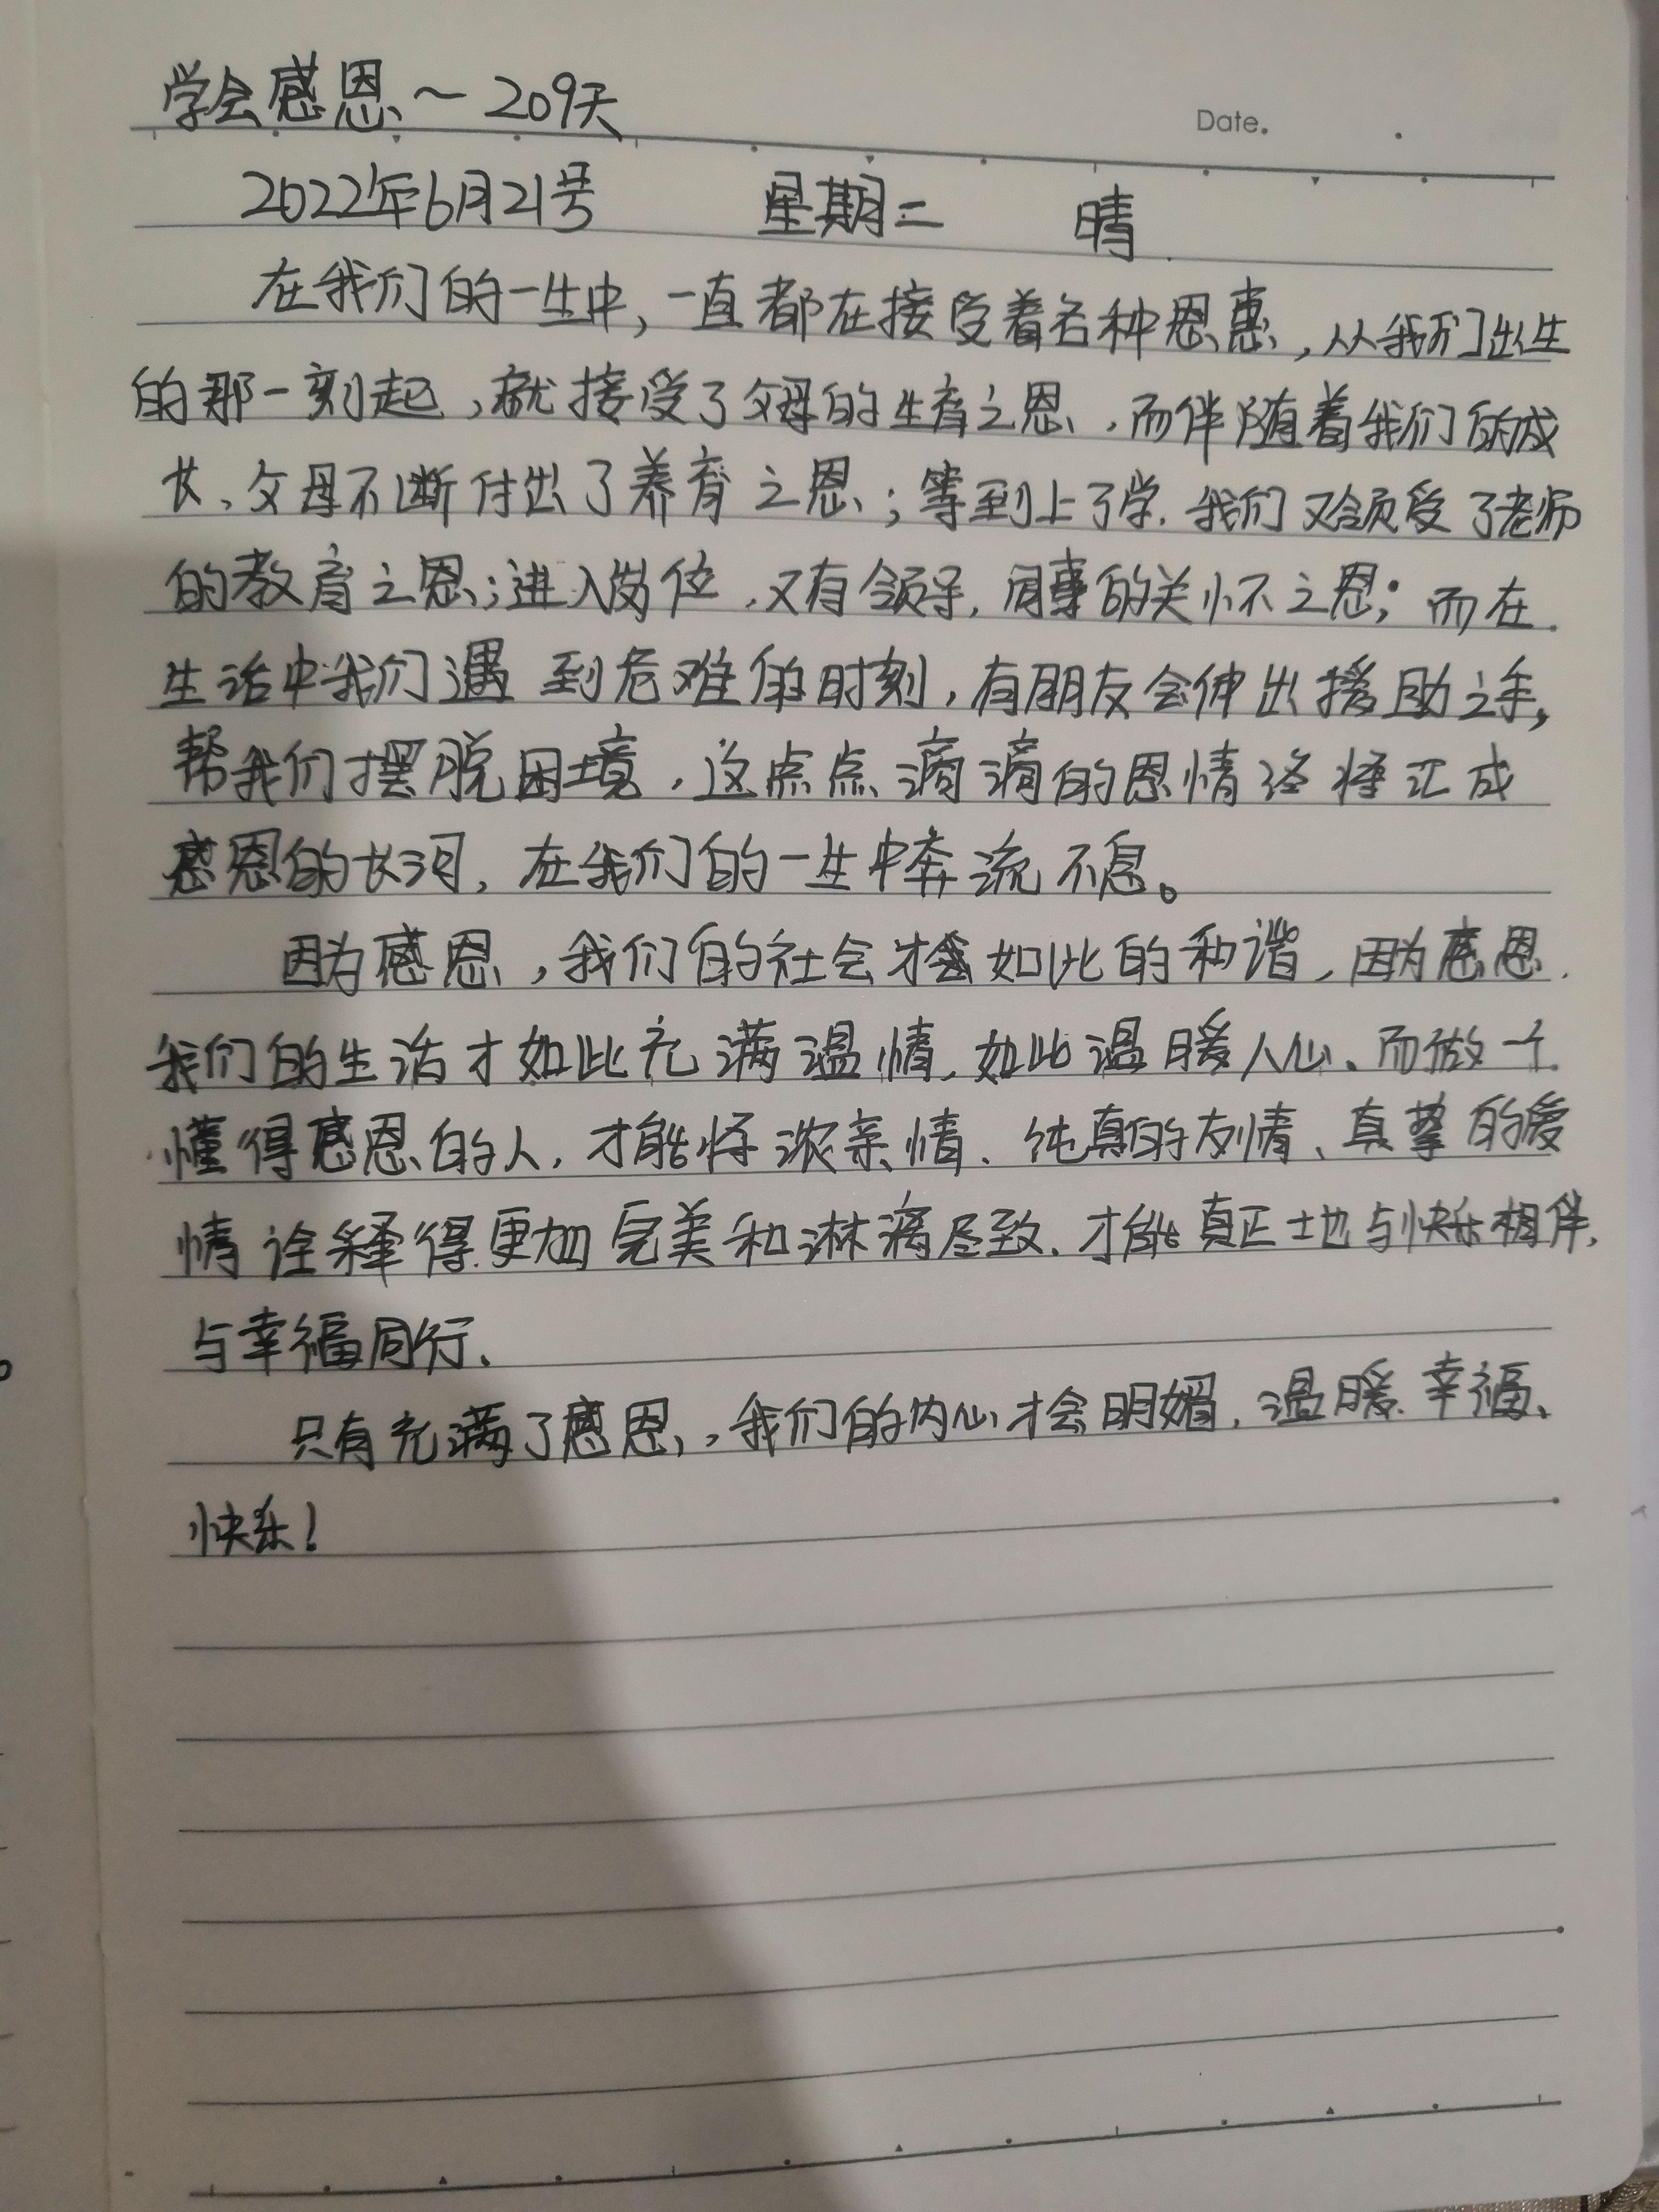 学会感恩～209天
Date.
2022年6月21号 星期二 晴
在我们的一生中，一直都在接受着各种恩惠，从我们出生
的那一刻起，就接受了父母的生育之恩，而伴随着我们的成
长、父母不断付出了养育之恩；等到上了学，我们又领受了老师
的教育之恩；进入岗位，又有领导，同事的关怀之恩；而在
生活中我们遇到危难的时刻，有朋友会伸出援助之手，
帮我们摆脱困境，这点点滴滴的恩情终将汇成
感恩的长河，在我们的一生中奔流不息。
因为感恩，我们的社会才会如此的和谐，因为感恩，
我们的生活才如此充满温情，如此温暖人心、而做一个
懂得感恩的人，才能将浓亲情、纯真的友情、真挚的爱
情诠释得更加完美和淋漓尽致，才能真正地与快乐相伴，
与幸福同行、
只有充满了感恩，我们的内心才会明媚，温暖、幸福、
快乐！